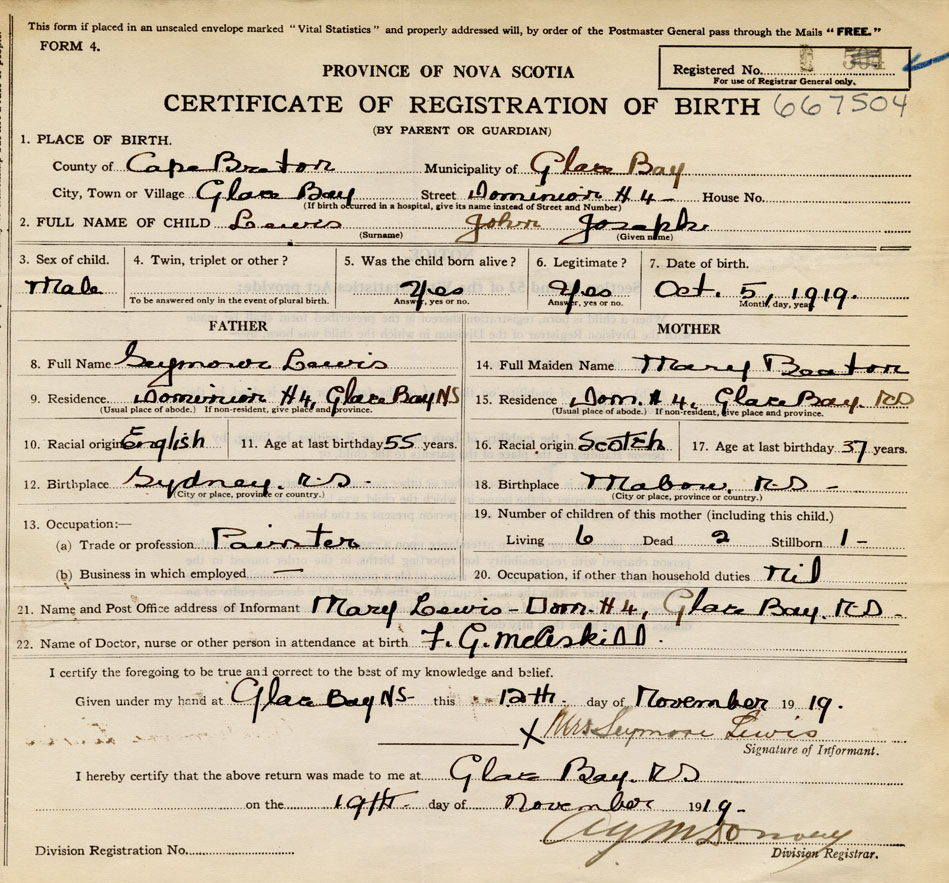 This form if placed in an unsealed envelope marked "Vital Statistics" and properly addressed will, by order of the Postmaster General pass through the Mails "FREE."
FORM 4.
Registered No.
For use of Registrar General only.
PROVINCE OF NOVA SCOTIA
CERTIFICATE OF REGISTRATION OF BIRTH 667504
(BY PARENT OR GUARDIAN)
1. PLACE OF BIRTH.
County of Cape Breton Municipality of Glace Bay
City, Town or Village Glace Bay Street Dominion #4 - House No.
(If birth occurred in a hospital, give its name instead of Street and Number)
2. FULL NAME OF CHILD Lewis John Joseph
(Surname) (Given name)
3. Sex of child. 4. Twin, triplet or other? 5. Was the child born alive? 6. Legitimate? 7. Date of birth.
Male Yes Yes Oct. 5, 1919.
To be answered only in the event of plural birth. Answer, yes or no. Answer, yes or no. Month, day, year
FATHER MOTHER
8. Full Name Seymour Lewis 14. Full Maiden Name Mary Beaton
9. Residence. Dominion #4, Glace Bay NS 15. Residence Dom. #4, Glace Bay. N.S
(Usual place of abode.) If non-resident, give place and province. (Usual place of abode.) If non-resident, give place and province.
10. Racial origin English 11. Age at last birthday 55 years. 16. Racial origin Scotch 17. Age at last birthday 37 years.
12. Birthplace Sydney. N.S - 18. Birthplace Mabou. N.S -
(City or place, province or country.) (City or place, province or country.)
13. Occupation:— 19. Number of children of this mother (including this child.)
(a) Trade or profession Painter Living 6 Dead 2 Stillborn 1 -
(b) Business in which employed — 20. Occupation, if other than household duties Nil
21. Name and Post Office address of Informant Mary Lewis - Dom. #4, Glace Bay. N.S -
22. Name of Doctor, nurse or other person in attendance at birth F. G.
I certify the foregoing to be true and correct to the best of my knowledge and belief.
Given under my hand at Glace Bay NS - this 12th. day of November 19 19.
X Mrs Seymore Lewis
Signature of Informant.
I hereby certify that the above return was made to me at Glace Bay. N.S
on the 19th day of November 1919-
Division Registration No. Division Registrar.